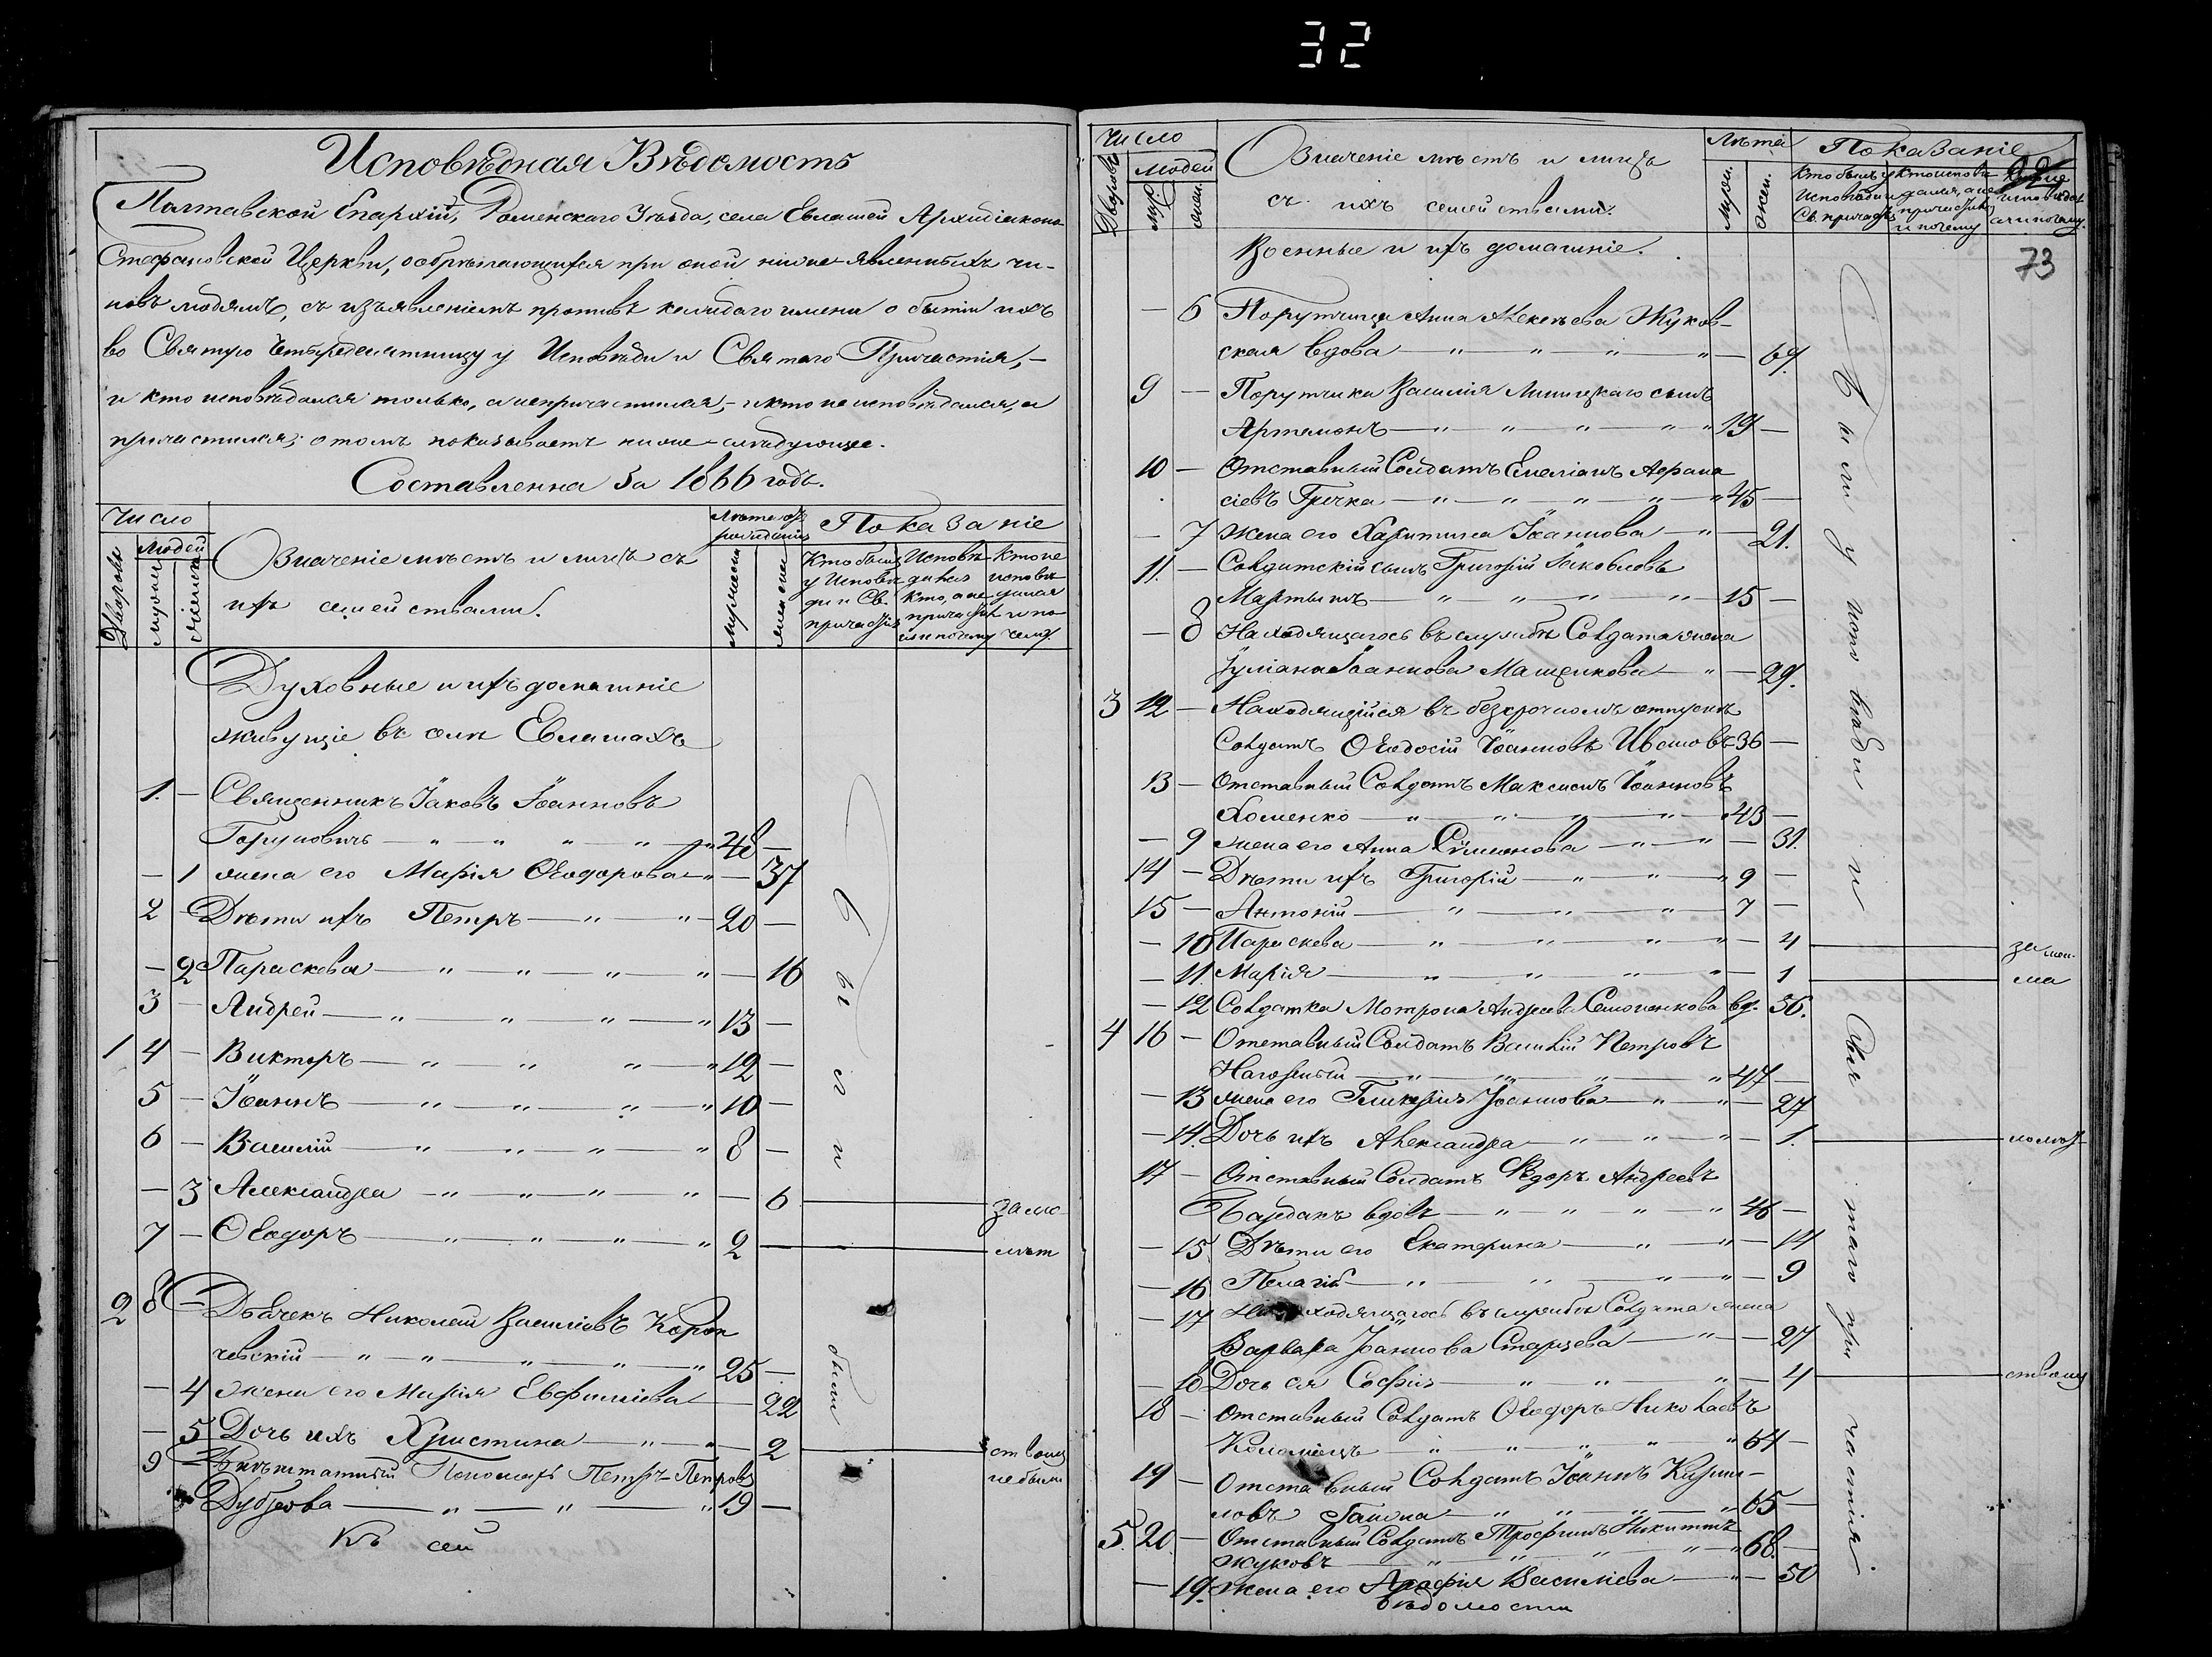 32
Исповѣдная Вѣдомость
Полтавской Епархіи, Роменскаго Уѣзда, села Евлашей Архидіакона
Стефановской Церкви, обрѣтающихся при оной ниже-явленныхъ чи-
новъ людямъ, съ изъявленіемъ противъ каждаго имени о бытіи ихъ
во Святую Четыредесятницу у Исповѣди и Святаго Причастія,-
и кто исповѣдался только, а непричастился,- и кто не исповѣдался, и
причастился; о томъ показываетъ ниже-слѣдующее.
Составленна За 1866 годъ.
Число
Дворовъ
Людей
Мужеска
Женска
Значеніе мѣстъ и лицъ съ
ихъ семействами.
Лѣта отъ рожденія
Мужеска
женска
Показаніе
Кто былъ у Исповѣди и Св. причастія
Исповѣдался кто, а не причаст. и почему
Кто не исповѣдался и почему
Духовные и ихъ домашніе
живущіе въ селѣ Евлашахъ
1. — Священникъ Іаковъ Іоанновъ
48 —
— 1 жена его Марія Ѳеодорова — 37
2 — Дѣти ихъ Петръ 20 —
— 2 Параскева — 16
3 — Андрей 13 —
1 4 — Викторъ 12 —
5 — Іоаннъ 10 —
6 — Василій 8 —
— 3 Александра — 6 за мо
7 — Ѳеодоръ 2 лѣт
2 8 — Дьячекъ Николай Василіевъ Корон
чевскій 25 —
— 4 жена его Марія Евфиміева 22
— 5 Дочь ихъ Христина — 2 ствомъ
9 — Пономарь Петръ Петровъ не были
19 —
Были
были
Къ сей
Число
Дворовъ
Людей
Муж.
жен.
Значеніе мѣстъ и лицъ
съ ихъ семействами.
Лѣта
Муж.
жен.
Показаніе
Кто былъ у Исповѣди и Св. причастія
и почему
73
Военные и ихъ домашніе.
— 6 Порутчица Анна Алексѣева Жуков-
ская вдова — 69.
9 — Порутчика Василія Линицкаго сынъ
Артемонъ 19 —
10 — Отставный Солдатъ Емеліанъ Афана
сіевъ Гречка 45 —
— 7 жена его Харитина Іоаннова — 21.
11. — Солдатскій сынъ Григорій Іаковлевъ
15 —
— 8 Находящагось въ службѣ Солдата жена
Іуліана Іоаннова Мащенкова — 29.
3 12 — Находящійся въ безсрочномъ отпускѣ
Солдатъ Ѳеодосій Іоанновъ 36 —
13 — Отставный Солдатъ Максимъ Іоанновъ
Хоменко 43 —
— 9 жена его Анна Сѵмеонова — 31.
14 — Дѣти ихъ Григорій 9 —
15 — Антоній 7 —
— 10 Параскева — 4 за мал.
— 11. Марія — 1 лѣ
— 12 Солдатка Мотрона Андреева вд. 56.
4 16 — Отставный Солдатъ Василій Петровъ
47 —
— 13 жена его Гликерія Іоаннова — 27
— 14. Дочь ихъ Александра — 1.
17 — Отставный Солдатъ Ѳедоръ Андреевъ
Байдакъ вдовъ 46 —
— 15 Дѣти его Екатерина — 14
— 16 Пелагія — 9
— 17 Находящагось въ службѣ Солдата жена
Варвара Іоаннова Старцева — 27
— 18 Дочь ея Софія — 4 ствомъ
18 — Отставный Солдатъ Ѳеодоръ Николаевъ
Коломіецъ 64 —
19 — Отставный Солдатъ Іоаннъ Кирил-
ловъ 65 —
5. 20 — Отставный Солдатъ Трофимъ Никитинъ
Жуковъ 68. —
— 19. жена его Агафія Василіева — 50
Были у исповѣди и Святаго причастія.
вѣдомости